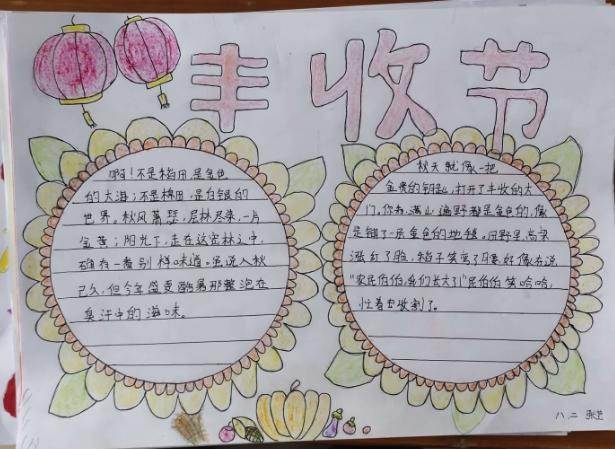 丰收节
啊！不是稻田，是金色
的大海；不是棉田，是白银的
世界。秋风萧瑟，层林尽染，一片
金黄；阳光下，走在这密林之中，
确有一番别样味道。虽说入秋
已久，但今年盛夏酷暑那整泡在
臭汗中的滋味。
秋天就像一把
金黄的钥匙，打开了丰收的大
门。你看，满山遍野都是金色的，像
是铺了一层金色的地毯。田野里，高粱
涨红了脸，稻子笑弯了腰，好像在说
“农民伯伯，我们长大了！”农民伯伯笑哈哈，
忙着去收割了。
八、二